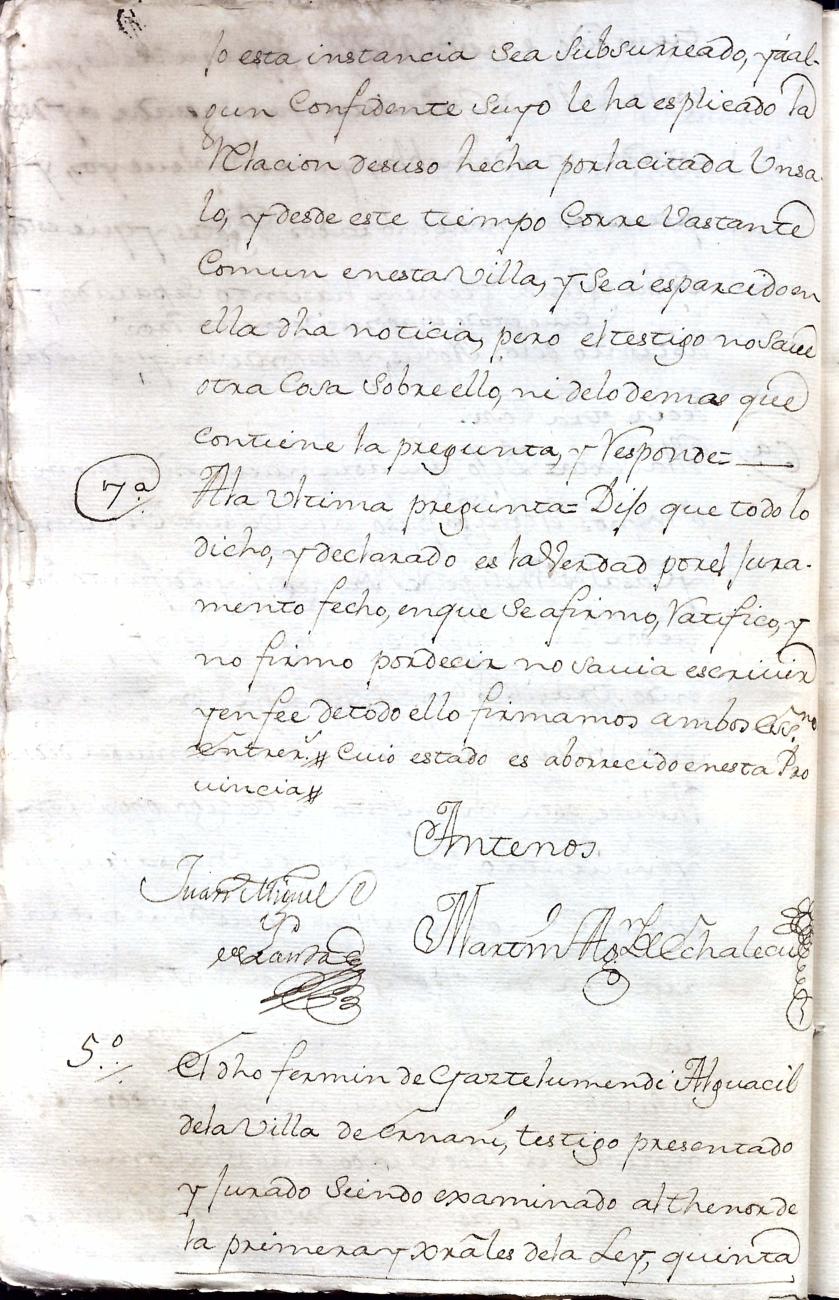 lo esta instancia sea subsurreado, y áal-
gun Confidente suyo le ha esplicado la
Relacion desuso hecha por la citada Unsa-
lo, y desde este tiempo Corre Vastante
Comun en esta Villa, y Sea esparcido en
ella dha noticia, pero el testigo no save
otra Cosa Sobre ello, ni delo demas que
contiene la pregunta, y Responde= ___
7ª Ala Ultima pregunta= Dijo que todo lo
dicho, y declarado es la Verdad por el Jura-
mento fecho, en que se afirmo, Ratifico, y
no firmo por decir no savia escrivir
y en fee de todo ello firmamos ambos Essno
entrer.s # Cuio estado es aborrecido en esta Pro
vincia #
Antenos
Juan Miguel
Martin Ag.n de Echalecu
5.º El dho fermin de Gaztelumendi Alguacil
dela Villa de Ernani, testigo presentado
y Jurado Siendo examinado al thenor de
la primera y xrâles dela Ley, quinta